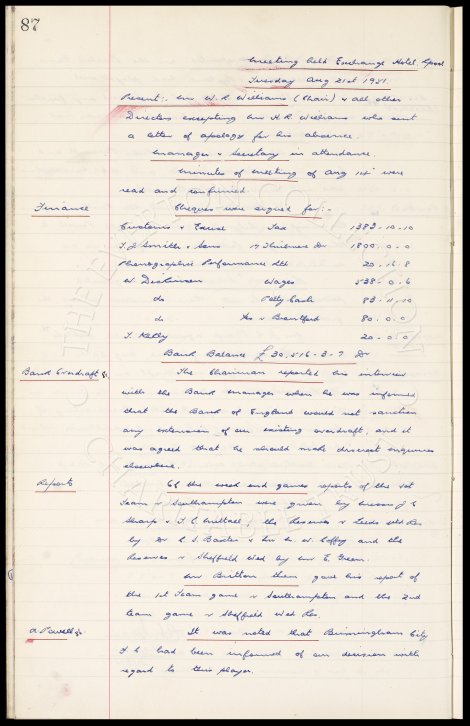 87
Meeting held Exchange Hotel, Lpool
Tuesday Aug 21st 1951.
Present:. Mr W. R. Williams (Chair) & all other
Directors excepting Mr H. R. Williams who sent
a letter of apology for his absence.
Manager & Secretary in attendance.
Minutes of meeting of Aug 14th were
read and confirmed.
Finance
Cheques were signed for:-
Customs & Excise Tax 1383-10-10
T. J. Smith & Sons Dr 1800-0-0
Phonographic Performance Ltd 20-16-8
W. Dickinson Wages 538-0-6
do Petty Cash 83-11-10
do v Brentford 80-0-0
T. Kelly 20-0-0
Bank Balance £30,516-3-7 Dr
Bank Overdraft
The Chairman reported his interview
with the Bank manager when he was informed
that the Bank of England would not sanction
any extension of our existing overdraft, and it
was agreed that he should make discreet enquiries
elsewhere.
Reports
Of the week end games reports of the 1st
Team v Southampton were given by Messrs J C
Sharp & T. C. Nuttall, the Reserves v Leeds Utd Res
by Dr C. S. Baxter & Mr W. Coffey and the
Reserves v Sheffield Wed by Mr E. Green.
Mr Britton then gave his report of
the 1st Team game v Southampton and the 2nd
team game v Sheffield Wed Res.
A Powell
It was noted that Birmingham City
F C had been informed of our decision with
regard to this player.